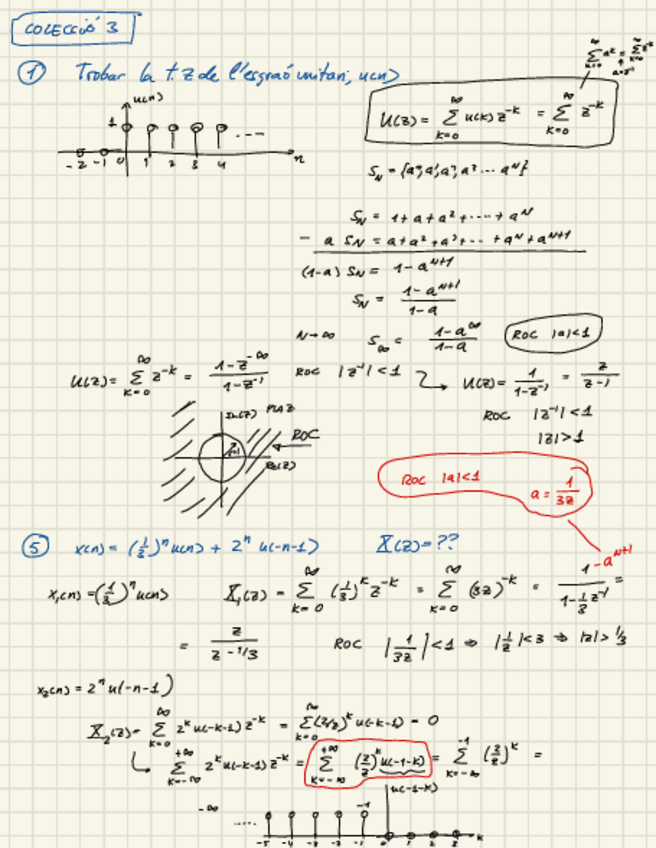 COLECCIÓ 3
① Trobar la t.z de l'esgraó unitari, u(n)
\sum_{k=0}^{\infty} a^k = \sum_{k=0}^{\infty} z^{-k}
a=z^{-1}
u(n)
1
-2 -1 0 1 2 3 4 n
U(z) = \sum_{k=0}^{\infty} u(k) z^{-k} = \sum_{k=0}^{\infty} z^{-k}
S_N = {a^0, a^1, a^2, a^3 ... a^N}
S_N = 1 + a + a^2 + ... + a^N
- a S_N = a + a^2 + a^3 + ... + a^N + a^{N+1}
(1-a) S_N = 1 - a^{N+1}
S_N = \frac{1 - a^{N+1}}{1-a}
N→∞ S_∞ = \frac{1 - a^∞}{1-a} ROC |a|<1
U(z) = \sum_{k=0}^{\infty} z^{-k} = \frac{1 - z^{-∞}}{1 - z^{-1}} ROC |z^{-1}| < 1 → U(z) = \frac{1}{1 - z^{-1}} = \frac{z}{z-1}
ROC |z^{-1}| < 1
|z| > 1
Im(z) PLA Z
ROC
Re(z)
ROC |a|<1
a = \frac{1}{3z}
⑤ x(n) = (\frac{1}{3})^n u(n) + 2^n u(-n-1) X(z) = ??
x_1(n) = (\frac{1}{3})^n u(n) X_1(z) = \sum_{k=0}^{\infty} (\frac{1}{3})^k z^{-k} = \sum_{k=0}^{\infty} (3z)^{-k} = \frac{1 - a^{N+1}}{1 - \frac{1}{3} z^{-1}} =
= \frac{z}{z - 1/3} ROC |\frac{1}{3z}| < 1 ⇒ |\frac{1}{z}| < 3 ⇒ |z| > 1/3
x_2(n) = 2^n u(-n-1)
X_2(z) = \sum_{k=0}^{\infty} 2^k u(-k-1) z^{-k} = \sum_{k=0}^{\infty} (2/z)^k u(-k-1) = 0
\sum_{k=-∞}^{+∞} 2^k u(-k-1) z^{-k} = \sum_{k=-∞}^{+∞} (\frac{2}{z})^k u(-1-k) = \sum_{k=-∞}^{-1} (\frac{2}{z})^k =
u(-1-k)
-∞ -1
-5 -4 -3 -2 -1 0 1 2 3 k